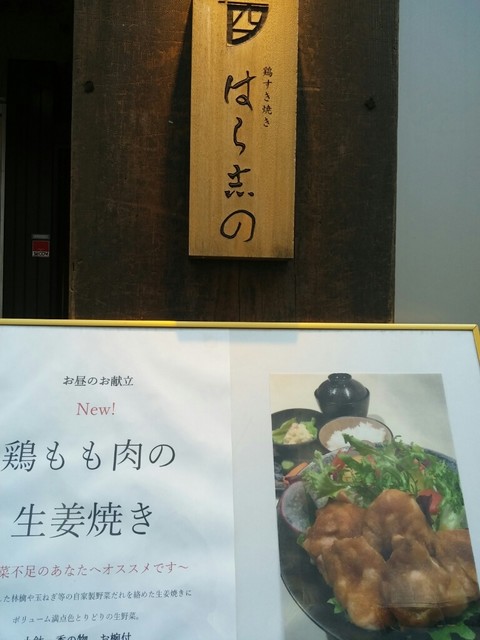 鶏すき焼き
はら志の
お昼のお献立
New!
鶏もも肉の
生姜焼き
菜不足のあなたへオススメです～
した林檎や玉ねぎ等の自家製野菜だれを絡めた生姜焼きに
ボリューム満点色とりどりの生野菜。
小鉢 香の物 お椀付